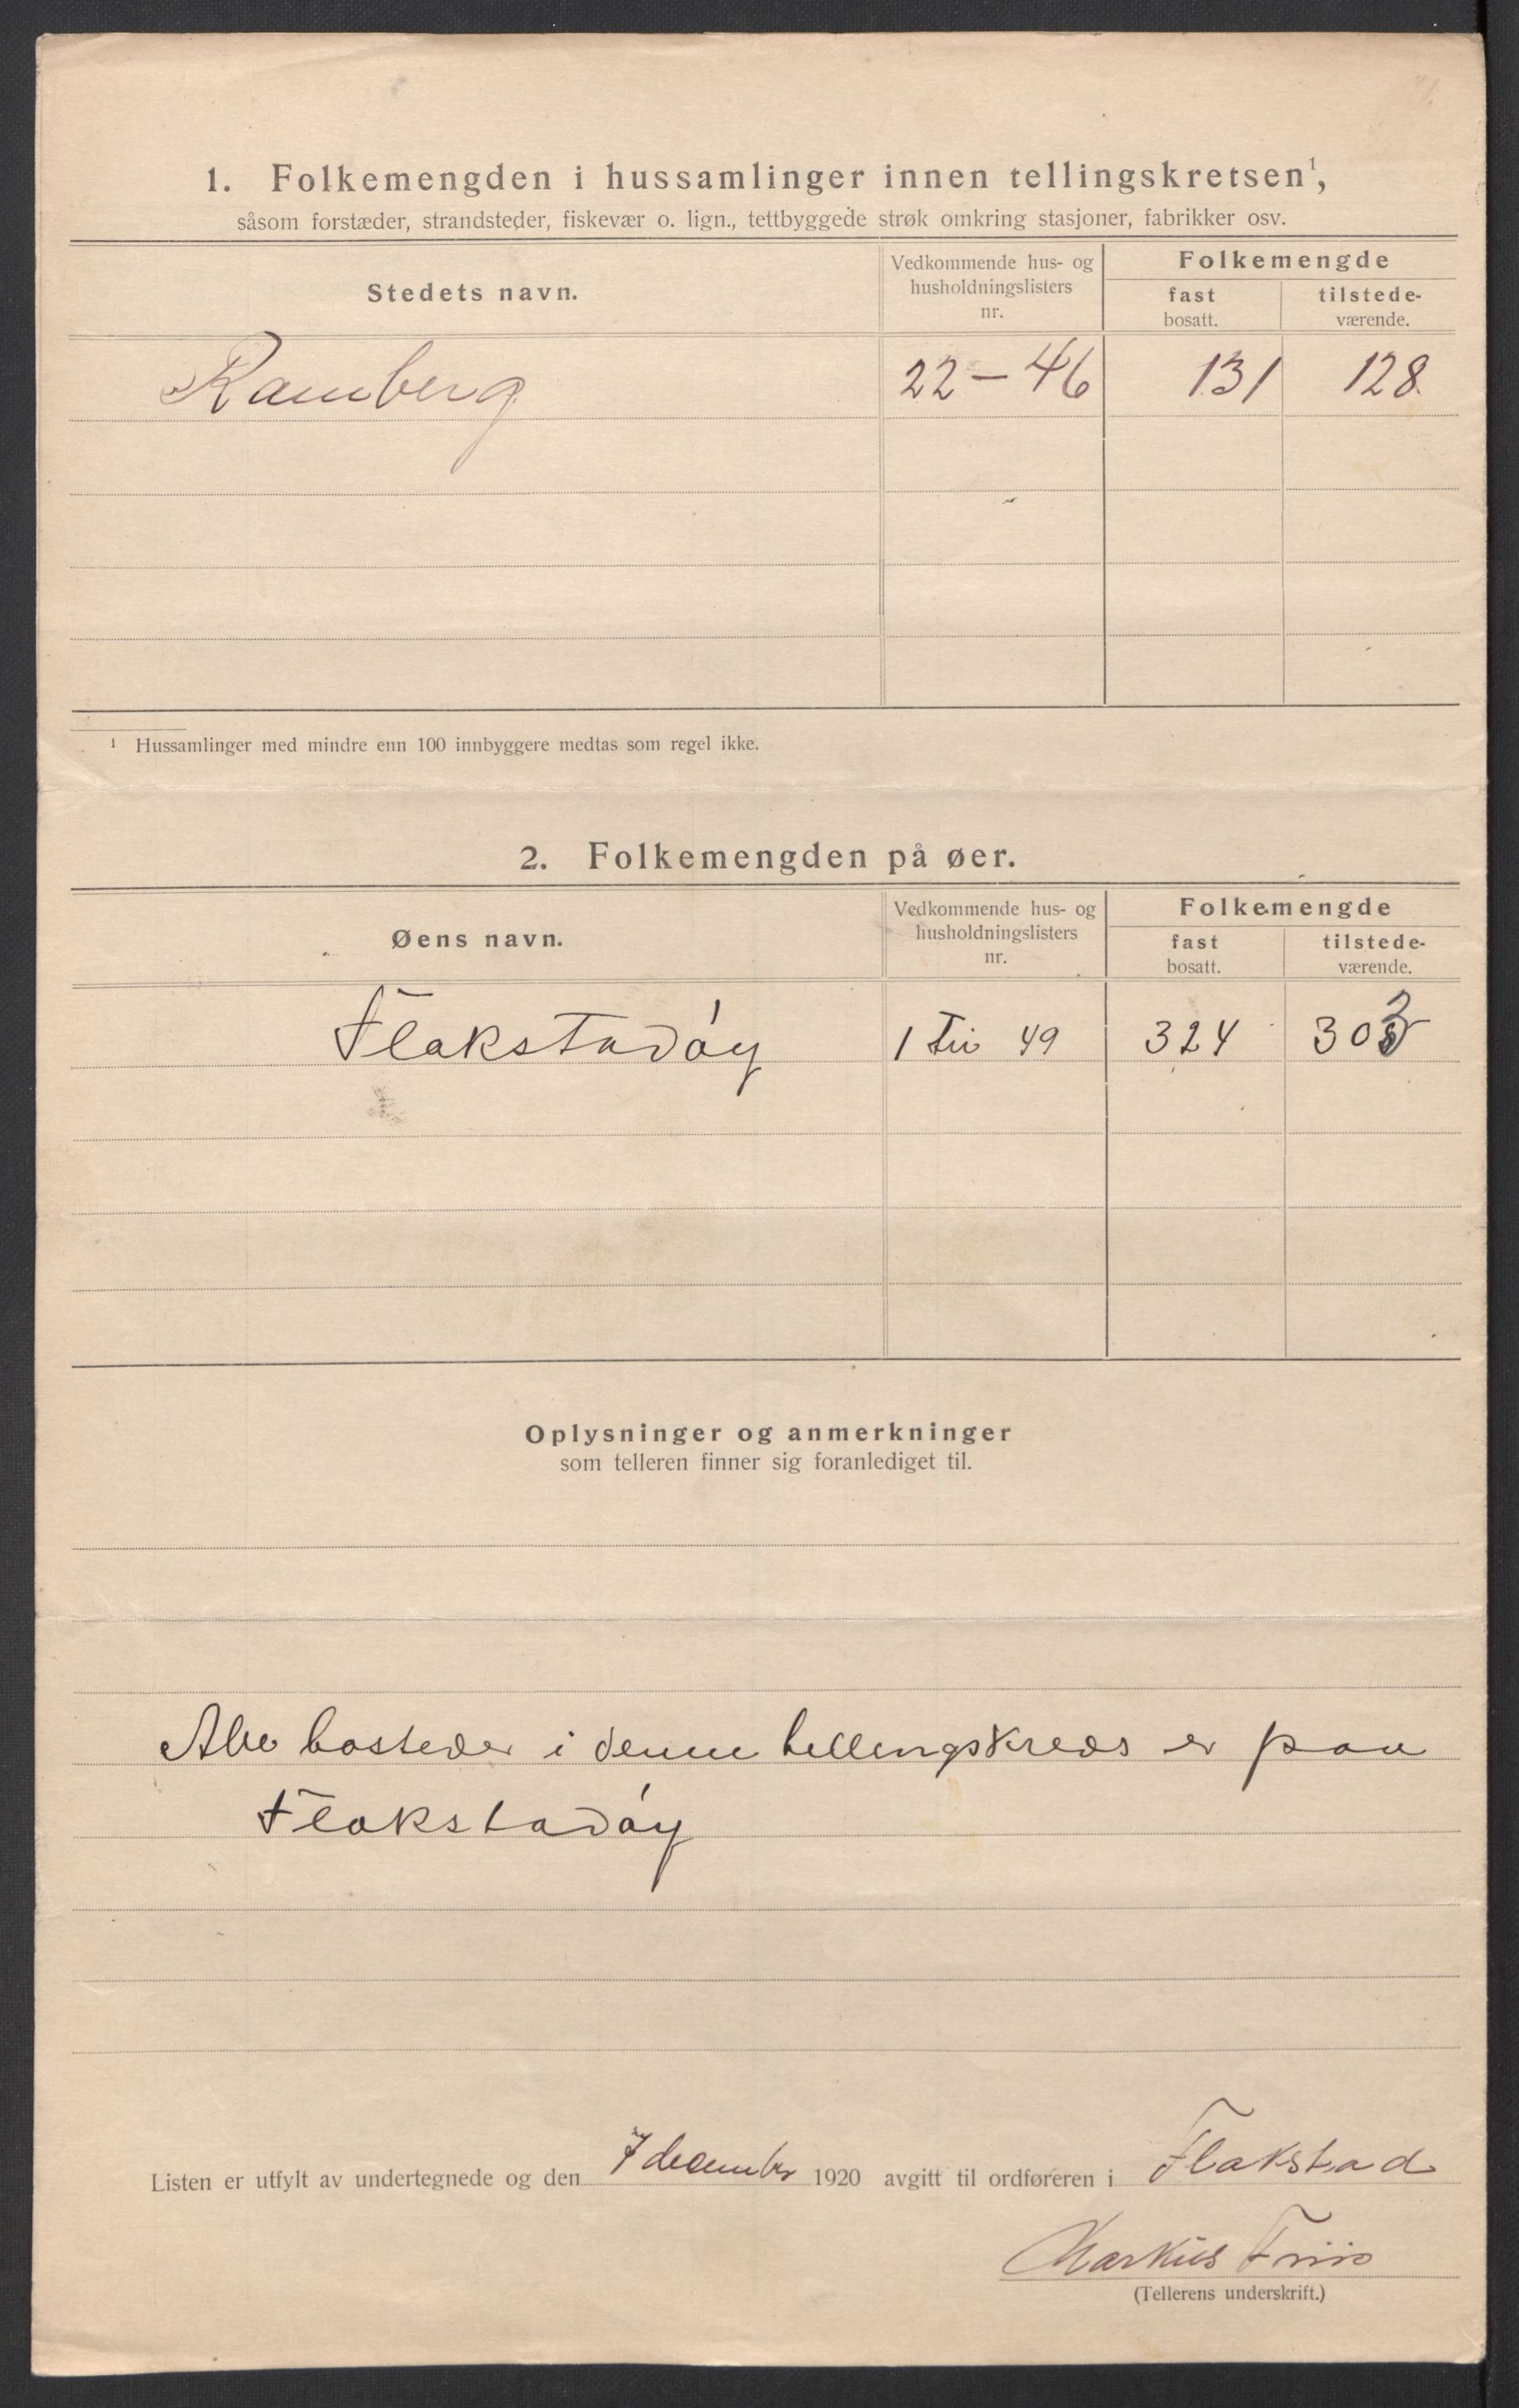 1. Folkemengden i hussamlinger innen tellingskretsen¹,
såsom forstæder, strandsteder, fiskevær o. lign., tettbyggede strøk omkring stasjoner, fabrikker osv.
Stedets navn.
Vedkommende hus- og
husholdningslisters
nr.
Folkemengde
fast
bosatt.
tilstede-
værende.
Ramberg 22 – 46 131 128.
¹ Hussamlinger med mindre enn 100 innbyggere medtas som regel ikke.
2. Folkemengden på øer.
Øens navn.
Vedkommende hus- og
husholdningslisters
nr.
Folkemengde
fast
bosatt.
tilstede-
værende.
Flakstadöy 1 til 49 324
Oplysninger og anmerkninger
som telleren finner sig foranlediget til.
Alle bosteder i denne tellingskreds er paa
Flakstadöy
Listen er utfylt av undertegnede og den 7 december 1920 avgitt til ordføreren i Flakstad
Markus Friis
(Tellerens underskrift.)